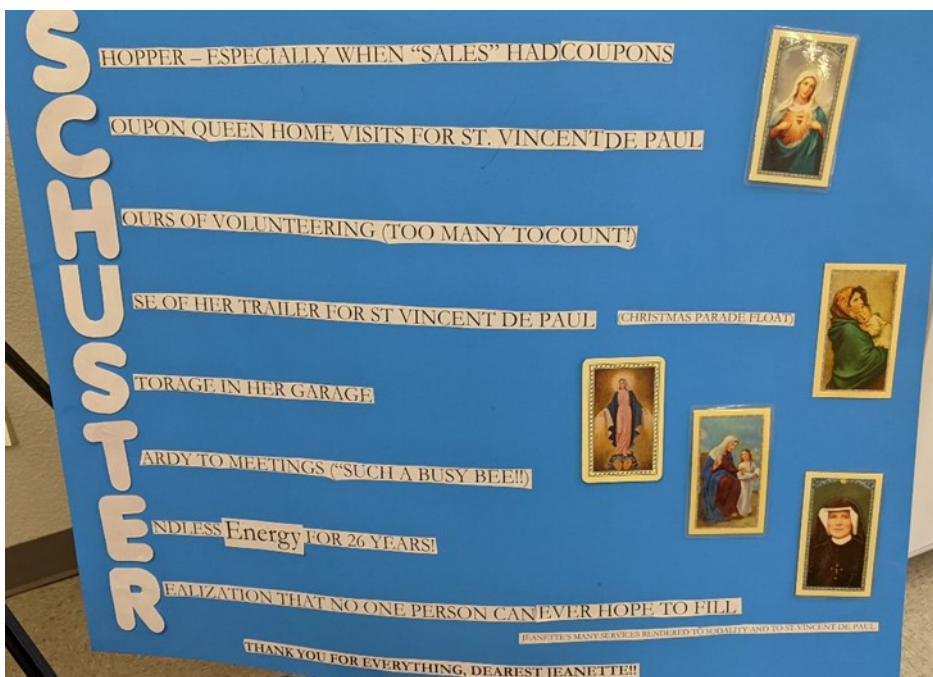 SHOPPER – ESPECIALLY WHEN “SALES” HAD COUPONS
COUPON QUEEN HOME VISITS FOR ST. VINCENT DE PAUL
HOURS OF VOLUNTEERING (TOO MANY TOCOUNT!)
USE OF HER TRAILER FOR ST VINCENT DE PAUL (CHRISTMAS PARADE FLOAT)
STORAGE IN HER GARAGE
TARDY TO MEETINGS (“SUCH A BUSY BEE!!)
ENDLESS Energy FOR 26 YEARS!
REALIZATION THAT NO ONE PERSON CAN EVER HOPE TO FILL
JEANETTE'S MANY SERVICES RENDERED TO SODALITY AND TO ST VINCENT DE PAUL
THANK YOU FOR EVERYTHING, DEAREST JEANETTE!!